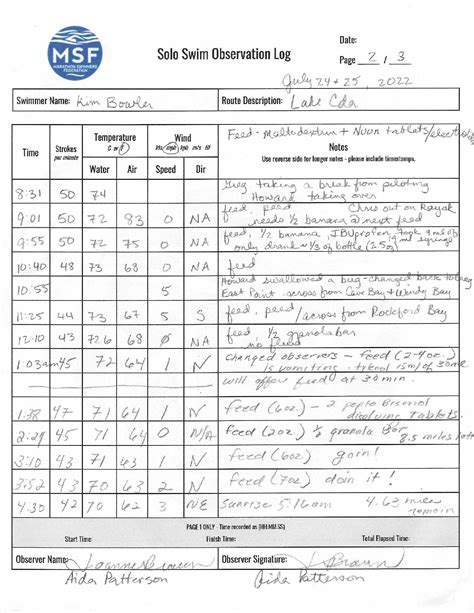 MSF
MARATHON SWIMMERS
FEDERATION
Solo Swim Observation Log
Date:
Page 2 / 3
July 24+25, 2022
Swimmer Name: Kim Bowler
Route Description: Lake Cda
Feed - Maltodextrin + Nuun tablets/
Time Strokes per minute Temperature C or F Water Air Wind Speed Dir Notes
Use reverse side for longer notes - please include timestamps.
8:31 50 74 Greg taking a break from piloting
Howard taking over
9:01 50 72 83 0 NA feed, peed Chris out on Kayak
needs 1/2 banana @ next feed
9:55 50 72 75 0 NA feed, 1/2 banana, IBUprofen, took 9 ml of
only drank ~ 1/3 of bottle (2.5oz)
10:40 48 73 68 0 NA feed
10:55 5 Howard swallowed a bug - changed back to Greg
East Point - across from Cave Bay + Windy Bay
11:25 44 73 67 5 S feed, peed / across from Rockford Bay
12:10 43 72.6 68 0 N feed 1/2 granola bar
no feed
1:03am 45 72 64 1 N changed observers - feed (2-4oz.)
is vomiting -
will offer feed at 30 min.
1:38 47 71 64 1 N feed (6oz.) - 2 pepto Bismol
disolving Tablets.
2:29 45 71 64 0 N/A feed (2oz) 1/2 granola Bar
8.5 miles
3:10 43 71 63 1 N feed (6oz) goin!
3:52 43 70 63 2 N feed (7oz) doin it!
4:30 42 70 62 3 NE Sunrise 5:16am 4.63 miles
remain
PAGE 1 ONLY - Time recorded as (HH:MM:SS)
Start Time: Finish Time: Total Elapsed Time:
Observer Name: Joanne Braun
Observer Signature: J Braun
Aida Patterson
Aida Patterson